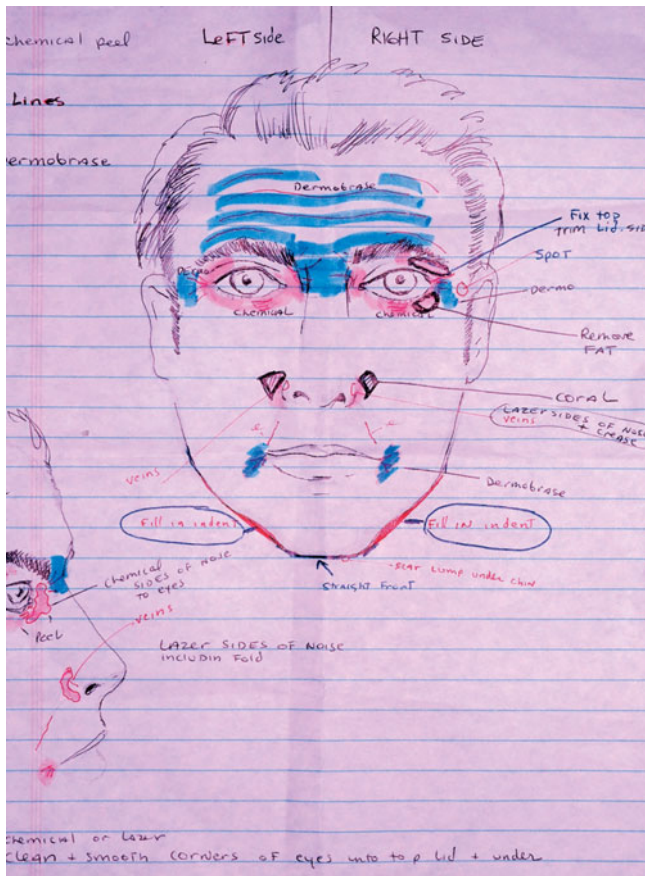 chemical peel
LeFT side
RIGHT SIDE
Lines
ermobrase
Dermobrase
Fix top
trim Lid. SID
SPOT
Dermo
chemical
chemical
Remove
FAT
CORAL
LAZER SIDES OF NOISE
veins + CREASE
veins
Dermobrase
Fill in indent
Fill IN indent
scar lump under chin
STRAIGHT FRONT
chemical
SIDES OF NOISE
to eyes
Peel
veins
LAZER SIDES OF NOISE
INCLUDIN FOLD
chemical or Lazer
clean + smooth corners of eyes into top lid + under